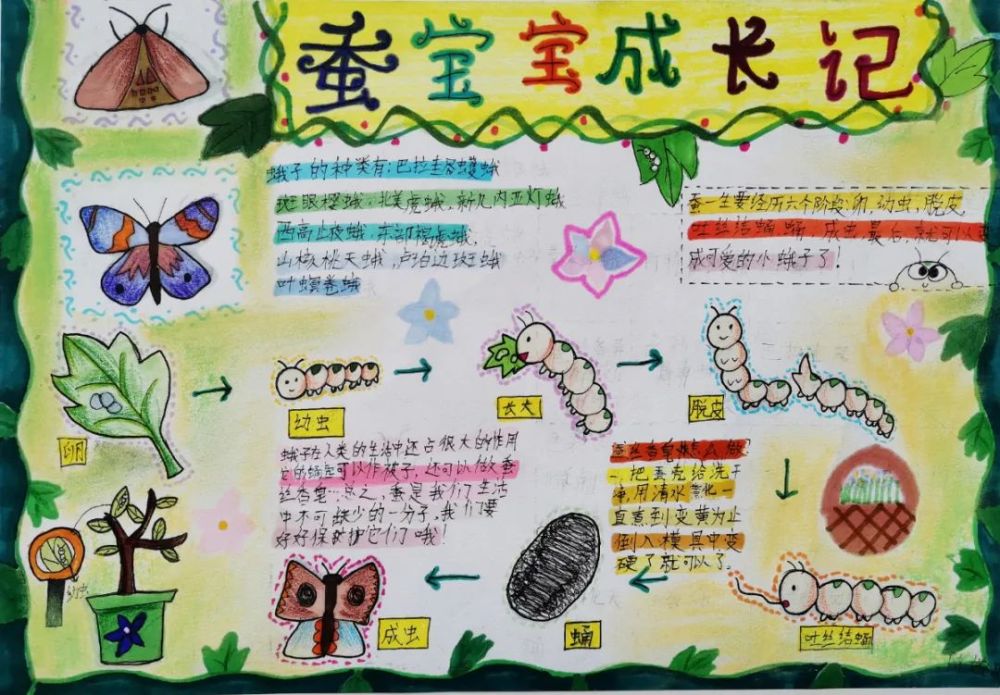 蚕宝宝成长记
蛾子的种类有:巴拉圭多螳蛾
斑眼橙蛾.北美虎蛾.新几内亚灯蛾
西高止夜蛾.东部褐虎蛾.
山核桃天蛾,卢泊边斑蛾
叶螟卷蛾
蚕一生要经历六个阶段:卵.幼虫,脱皮
吐丝结蛹 蛹.成虫 最后,就可以变
成可爱的小蛾子了!
卵
幼虫
长大
脱皮
蛾子在人类的生活中还占很大的作用
可以作被子,还可以做蚕
丝香皂…总之,蚕是我们生活
中不可缺少的一分子,我们要
好好保护它们了哦!
蚕丝香皂怎么做?
一,把蚕壳给洗干
净,用清水煮化一
直煮到变黄为止
倒入模具中变
硬了就可以了.
幼虫
成虫
蛹
吐丝结蛹